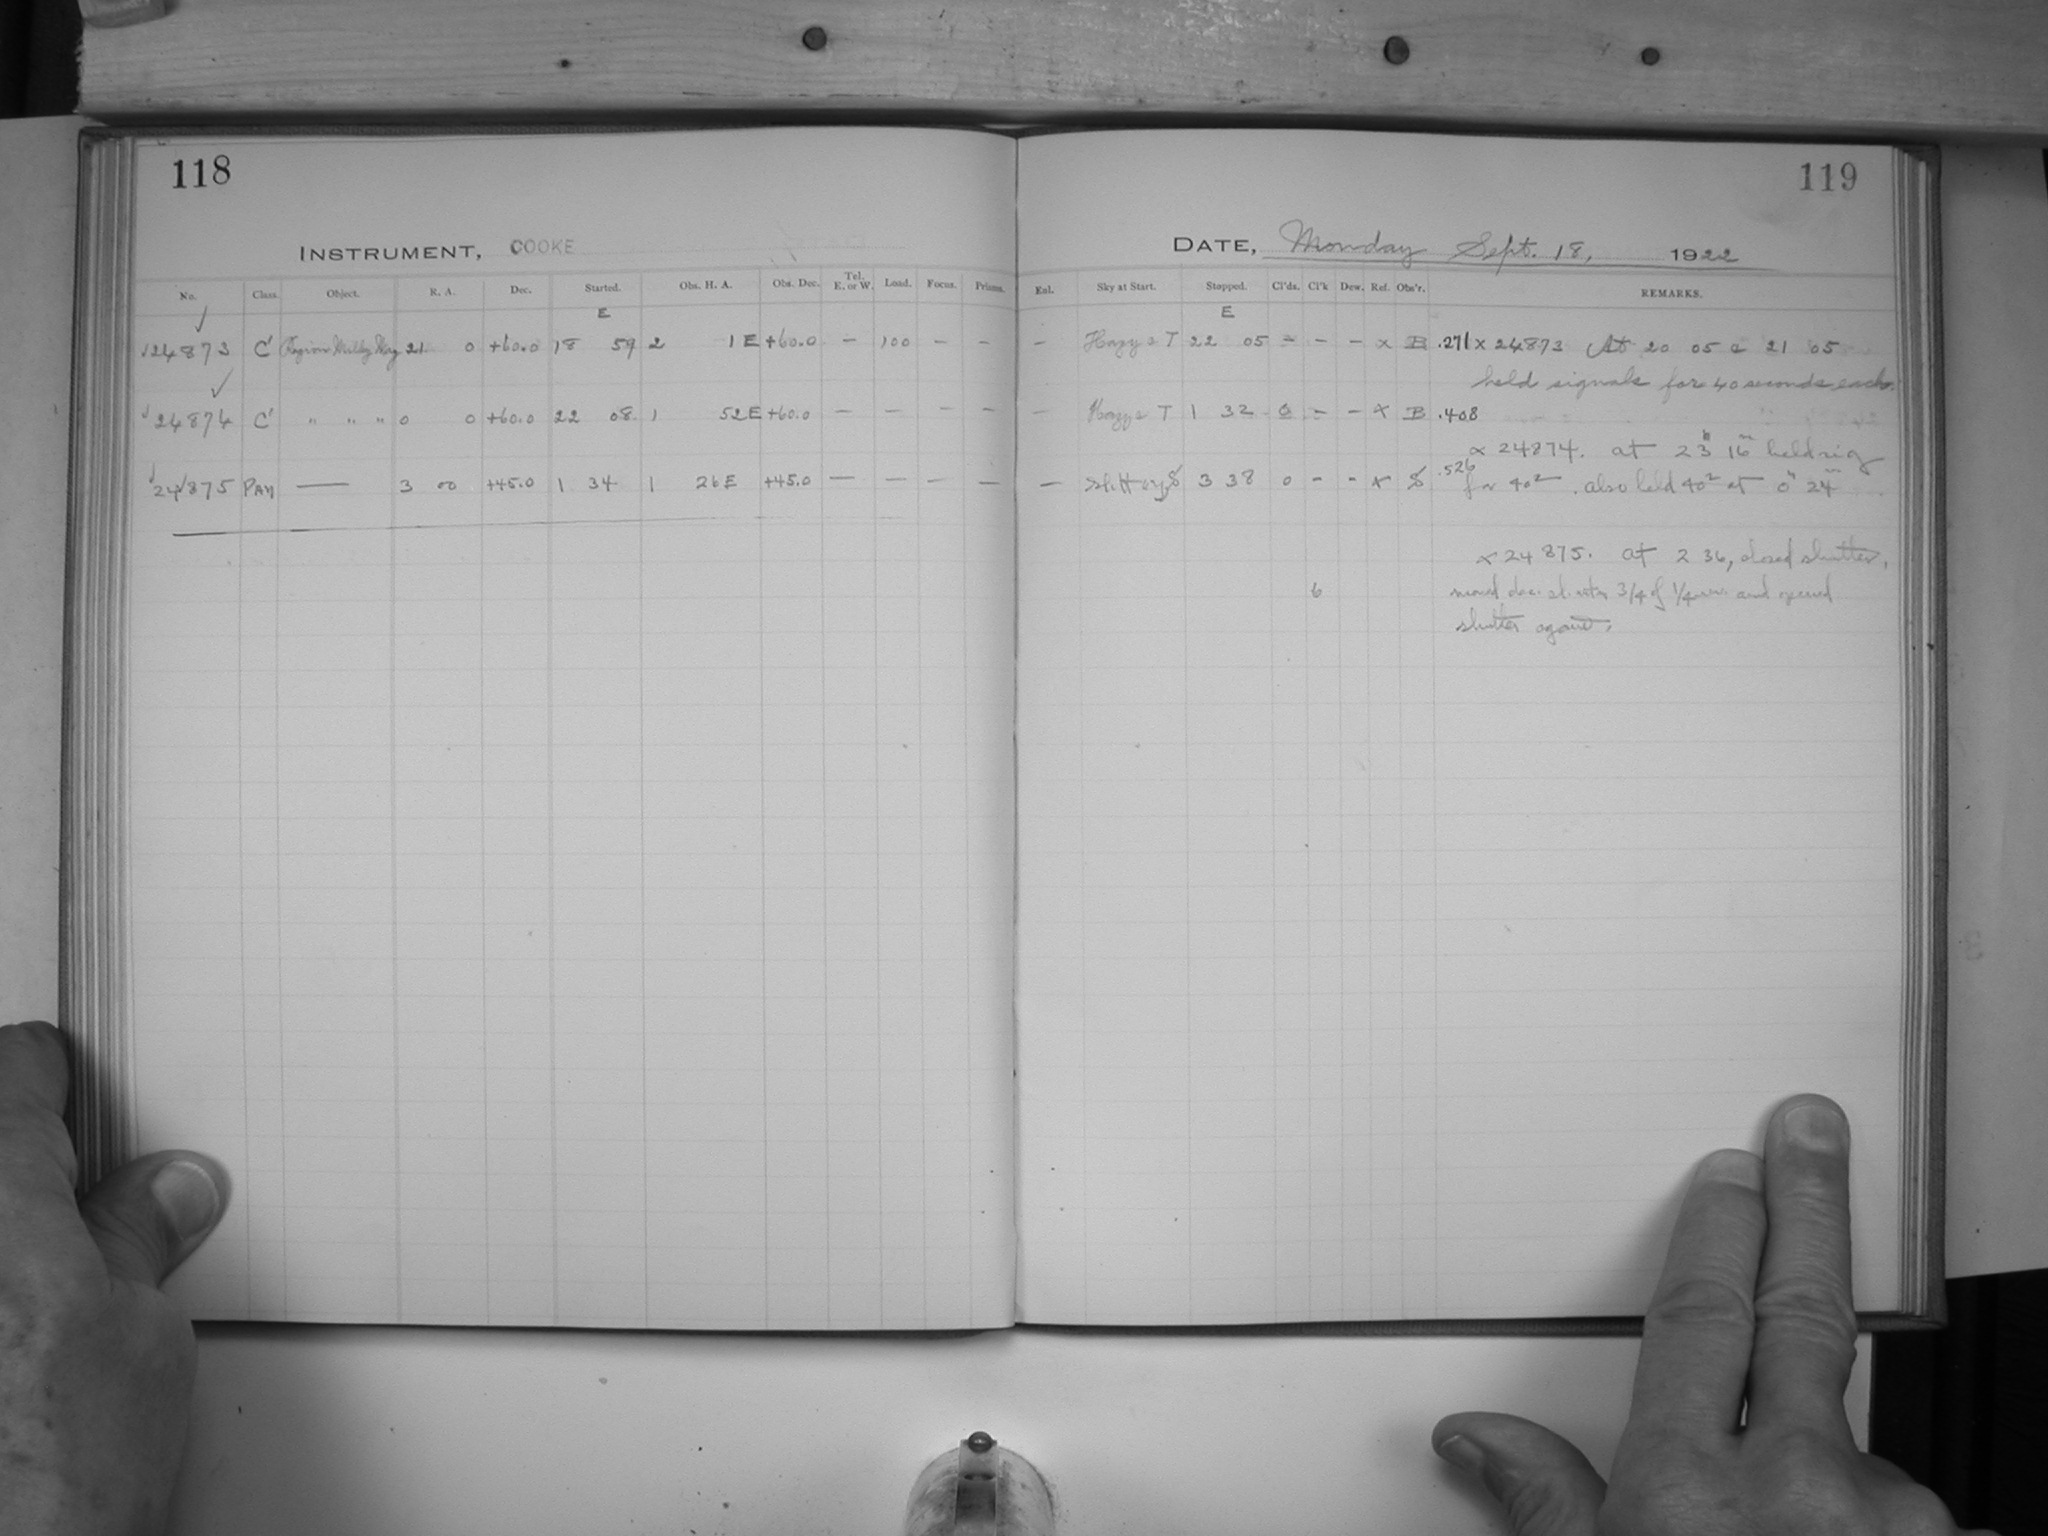 118
119
INSTRUMENT, COOKE
DATE, Monday Sept. 18, 1922
No. Class. Object. R. A. Dec. Started. Obs. H. A. Obs. Dec. Tel. E. or W. Load. Focus. Prisms. Enl. Sky at Start. Stopped. Cl'ds. Cl'k Dew. Ref. Obs'r. REMARKS.
E E
24873 C' Region Milky Way 21 0 +60.0 18 59 2 1 E +60.0 — 100 — — — Hazy T 22 05 — — — x B .271 x 24873 At 20 05 & 21 05
held signals for 40 seconds each.
24874 C' " " " 0 0 +60.0 22 08 1 52 E +60.0 — — — — — Hazy T 1 32 0 — — x B .408
x 24874. at 23h 16m held sig
24875 PAN — 3 00 +45.0 1 34 1 26 E +45.0 — — — — — 3 38 0 - - x S .526
for 40s. also held 40s at 0h 24m
x 24875. at 2 36, closed shutter,
6
moved dec. 3/4 of 1/4 and opened
shutter again.